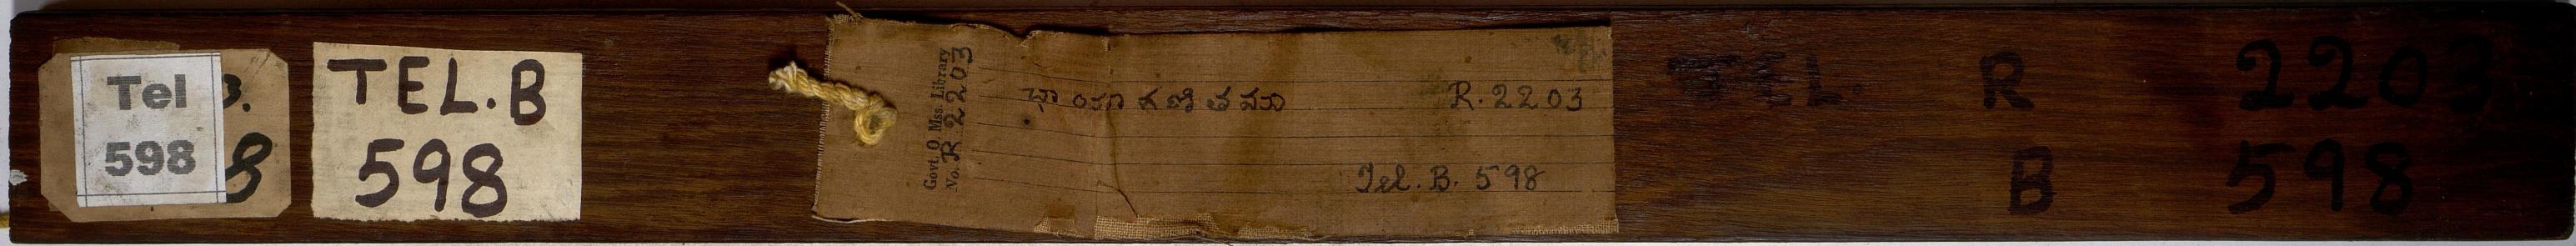 Tel
598
B.
8
TEL.B
598
Govt. O. Mss. Library
No. R 2203
ఛాయా గణితము R. 2203
Tel. B. 598
TEL. R 2203
B 598